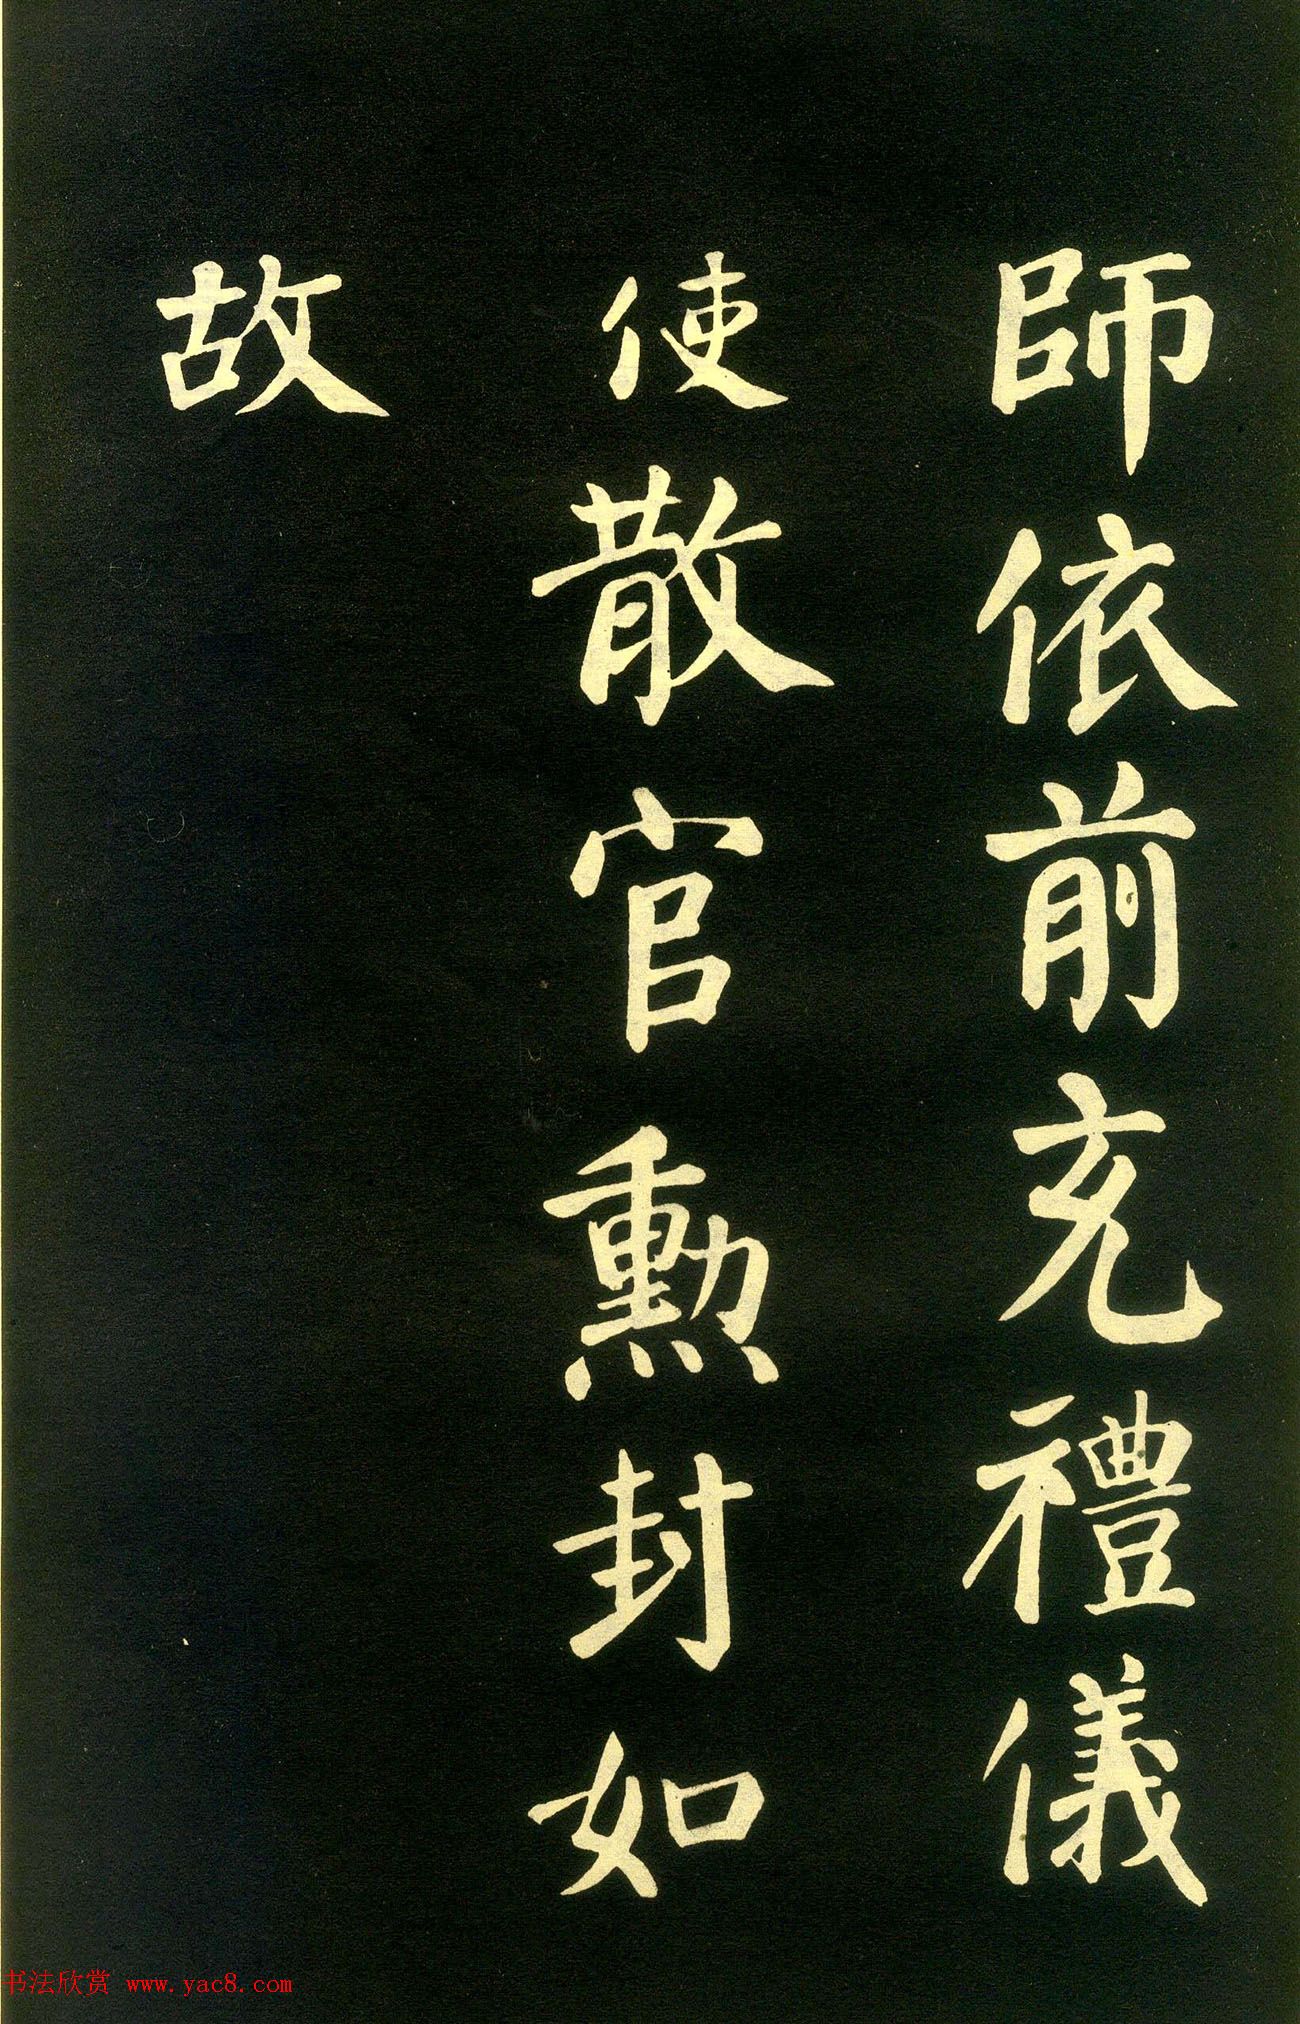 師依前充禮儀
使散官勳封如
故
书法欣赏 www.yac8.com